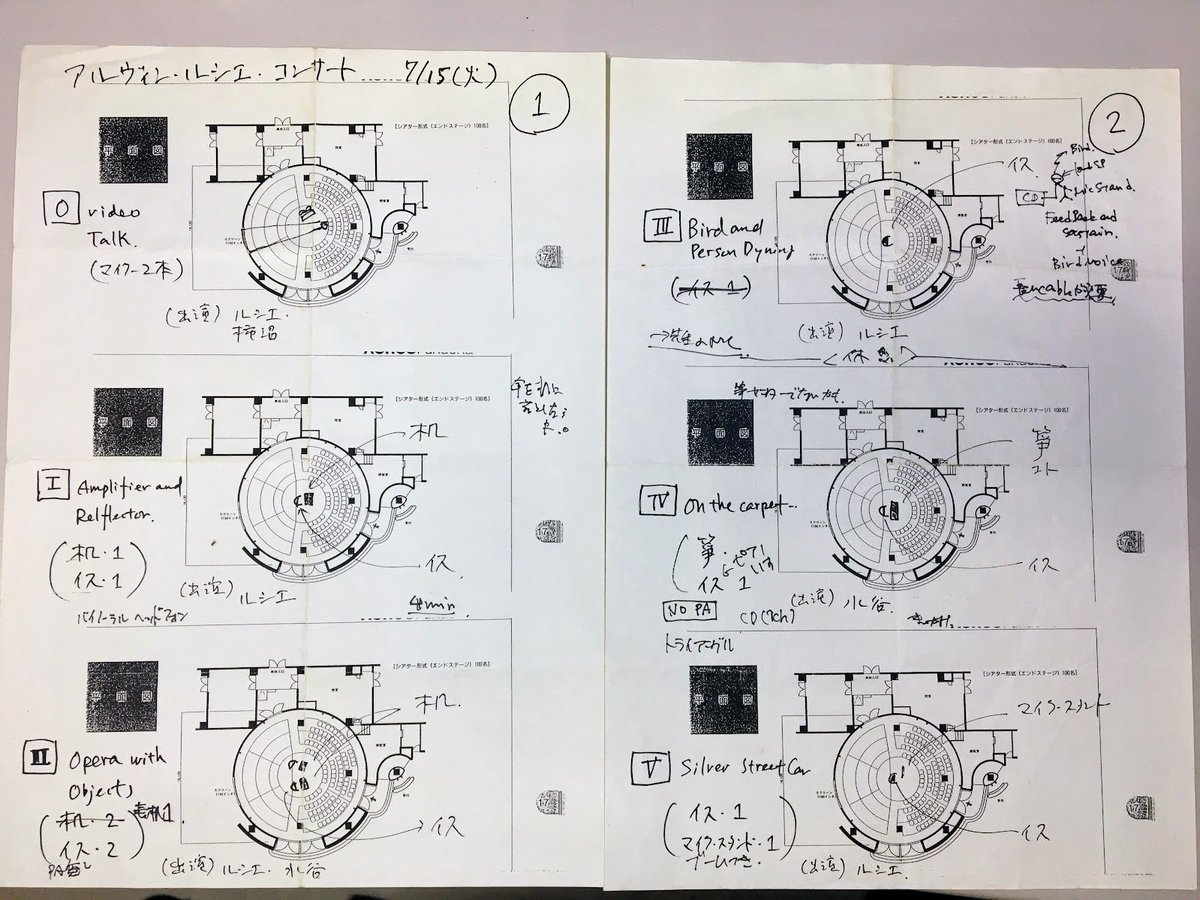 アルヴィン・ルシエ・コンサート 7/15(火)
1
平面図
[シアター形式(エンドステージ)100名]
0 video
Talk.
(マイク-2本)
(出演)ルシエ.
柿沼
平面図
[シアター形式(エンドステージ)100名]
机
I Amplifier and
Relflector.
(机・1
イス・1)
イス.
(出演)ルシエ
4min
バイノーラル ヘッドフォン
平面図
[シアター形式(エンドステージ)100名]
机.
II Opera with
Objects
(机・2
イス・2)
イス
(出演)ルシエ・水谷
2
平面図
[シアター形式(エンドステージ)100名]
イス.
Bird.
CD
Mic Stand.
Feed Back and
III Bird and
Person Dyning
(イス 1)
Bird voice
(出演)ルシエ
<休憩>
平面図
[シアター形式(エンドステージ)100名]
箏
コト
IV On the carpet...
(箏・
イス 1
イス
(出演)水谷.
NO PA
トライアングル
平面図
[シアター形式(エンドステージ)100名]
マイク・スタンド
V Silver Street Car
(イス・1
マイク・スタンド・1)
ブームつき.
イス
(出演)ルシエ.